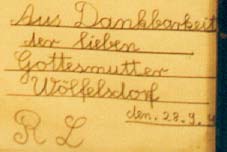 Aus Dankbarkeit
der lieben
Gottesmutter
Wölfelsdorf
den. 28. 9.
R L